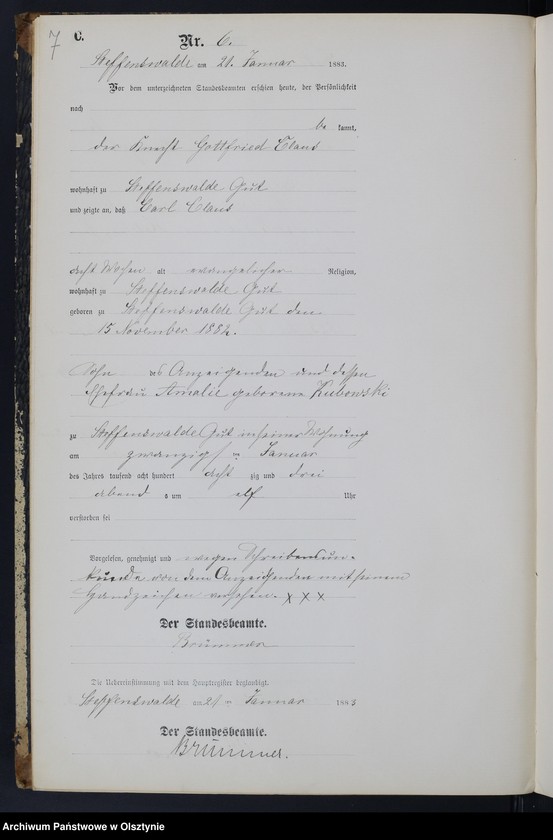 7
C.
Nr. 6.
Steffenswalde am 21. Januar 1883.
Vor dem unterzeichneten Standesbeamten erschien heute, der Persönlichkeit
nach
be kannt,
der Knecht Gottfried Claus
wohnhaft zu Steffenswalde Gut
und zeigte an, daß Carl Claus
acht Wochen alt evangelischer Religion,
wohnhaft zu Steffenswalde Gut
geboren zu Steffenswalde Gut den
15 November 1882.
Sohn des Anzeigenden und dessen
Ehefrau Amalie geborene Kubowski
zu Steffenswalde Gut in seiner Wohnung
am zwanzigsten Januar
des Jahrs tausend acht hundert acht zig und drei
abend s um elf Uhr
verstorben sei
Vorgelesen, genehmigt und wegen Schreibensun-
kunde von dem Anzeigenden mit seinem
Handzeichen versehen. x x x
Der Standesbeamte.
Brümmer
Die Uebereinstimmung mit dem Hauptregister beglaubigt.
Steffenswalde am 21 ten Januar 1883
Der Standesbeamte.
Brümmer.
Archiwum Państwowe w Olsztynie